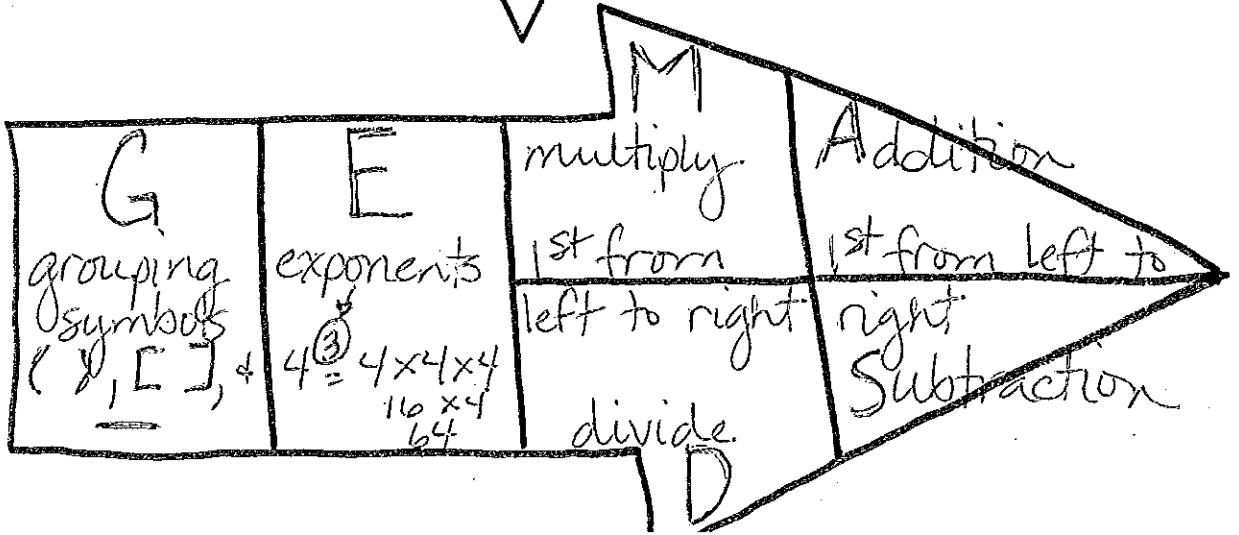 G
grouping
symbols
( ), [ ], +
E
exponents
4③= 4x4x4
16 x4
64
M
multiply
1st from
left to right
divide
D
Addition
1st from left to
right
Subtraction